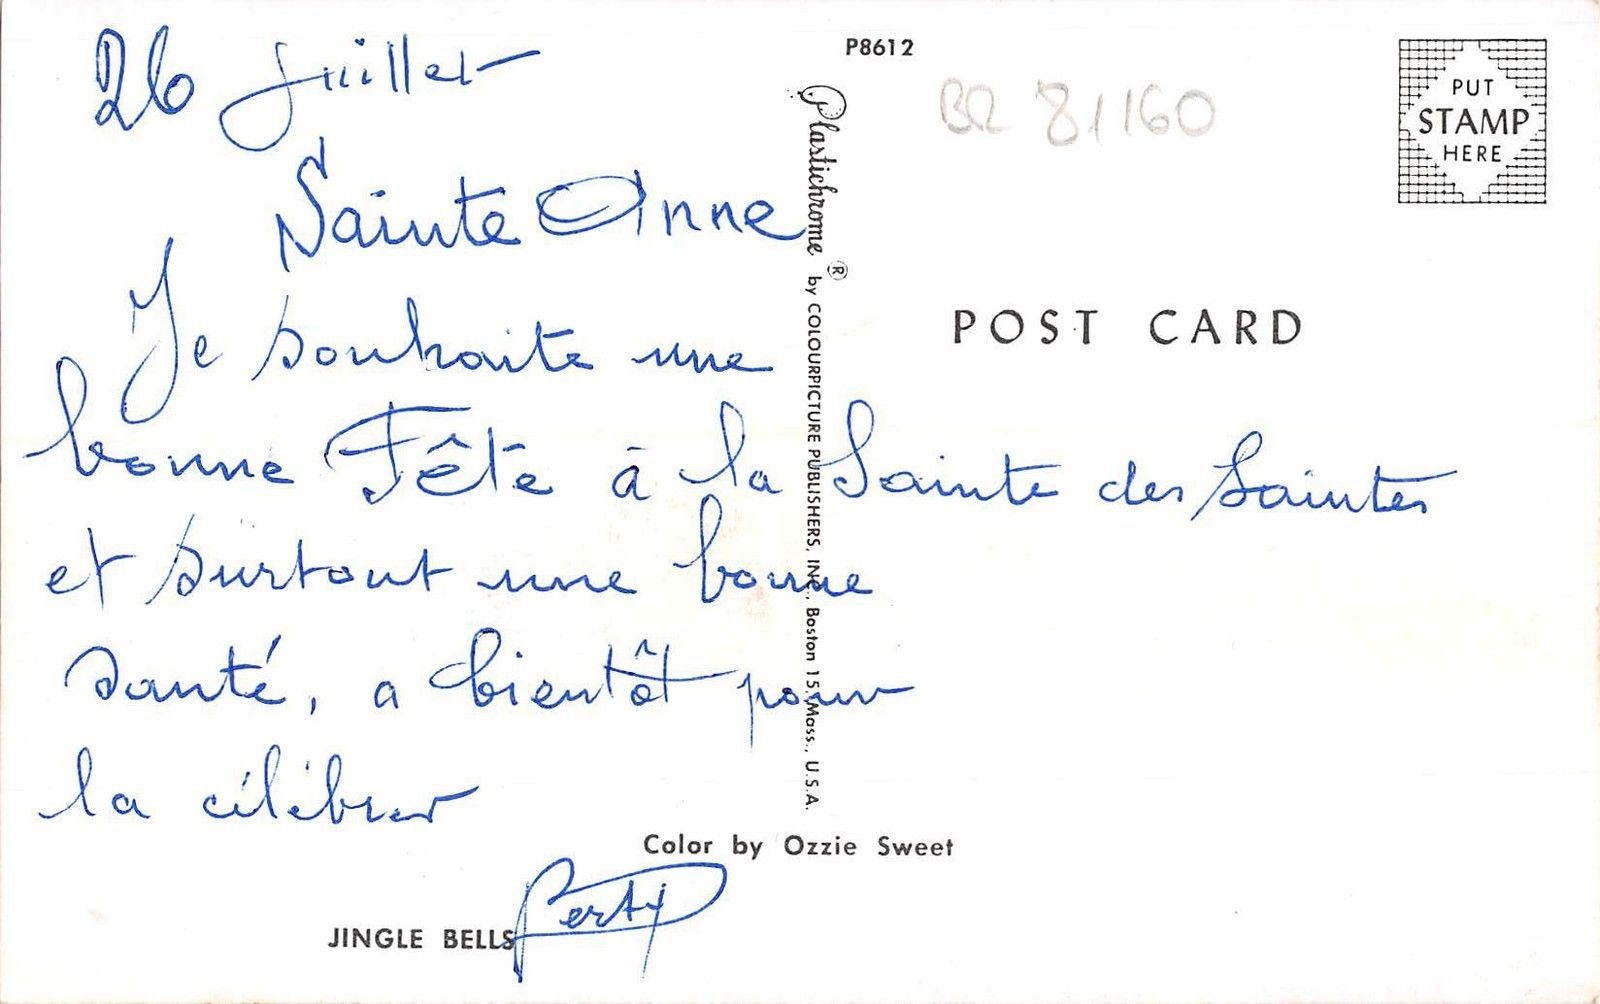 P8612
BR 81160
PUT
STAMP
HERE
26 Juillet
Sainte Anne
Je souhaite une
bonne Fête à la Sainte des Saintes
et surtout une bonne
santé, a bientôt pour
la célébrer
Berty
Plastichrome ® by COLOURPICTURE PUBLISHERS, INC., Boston 15, Mass., U.S.A.
POST CARD
Color by Ozzie Sweet
JINGLE BELLS